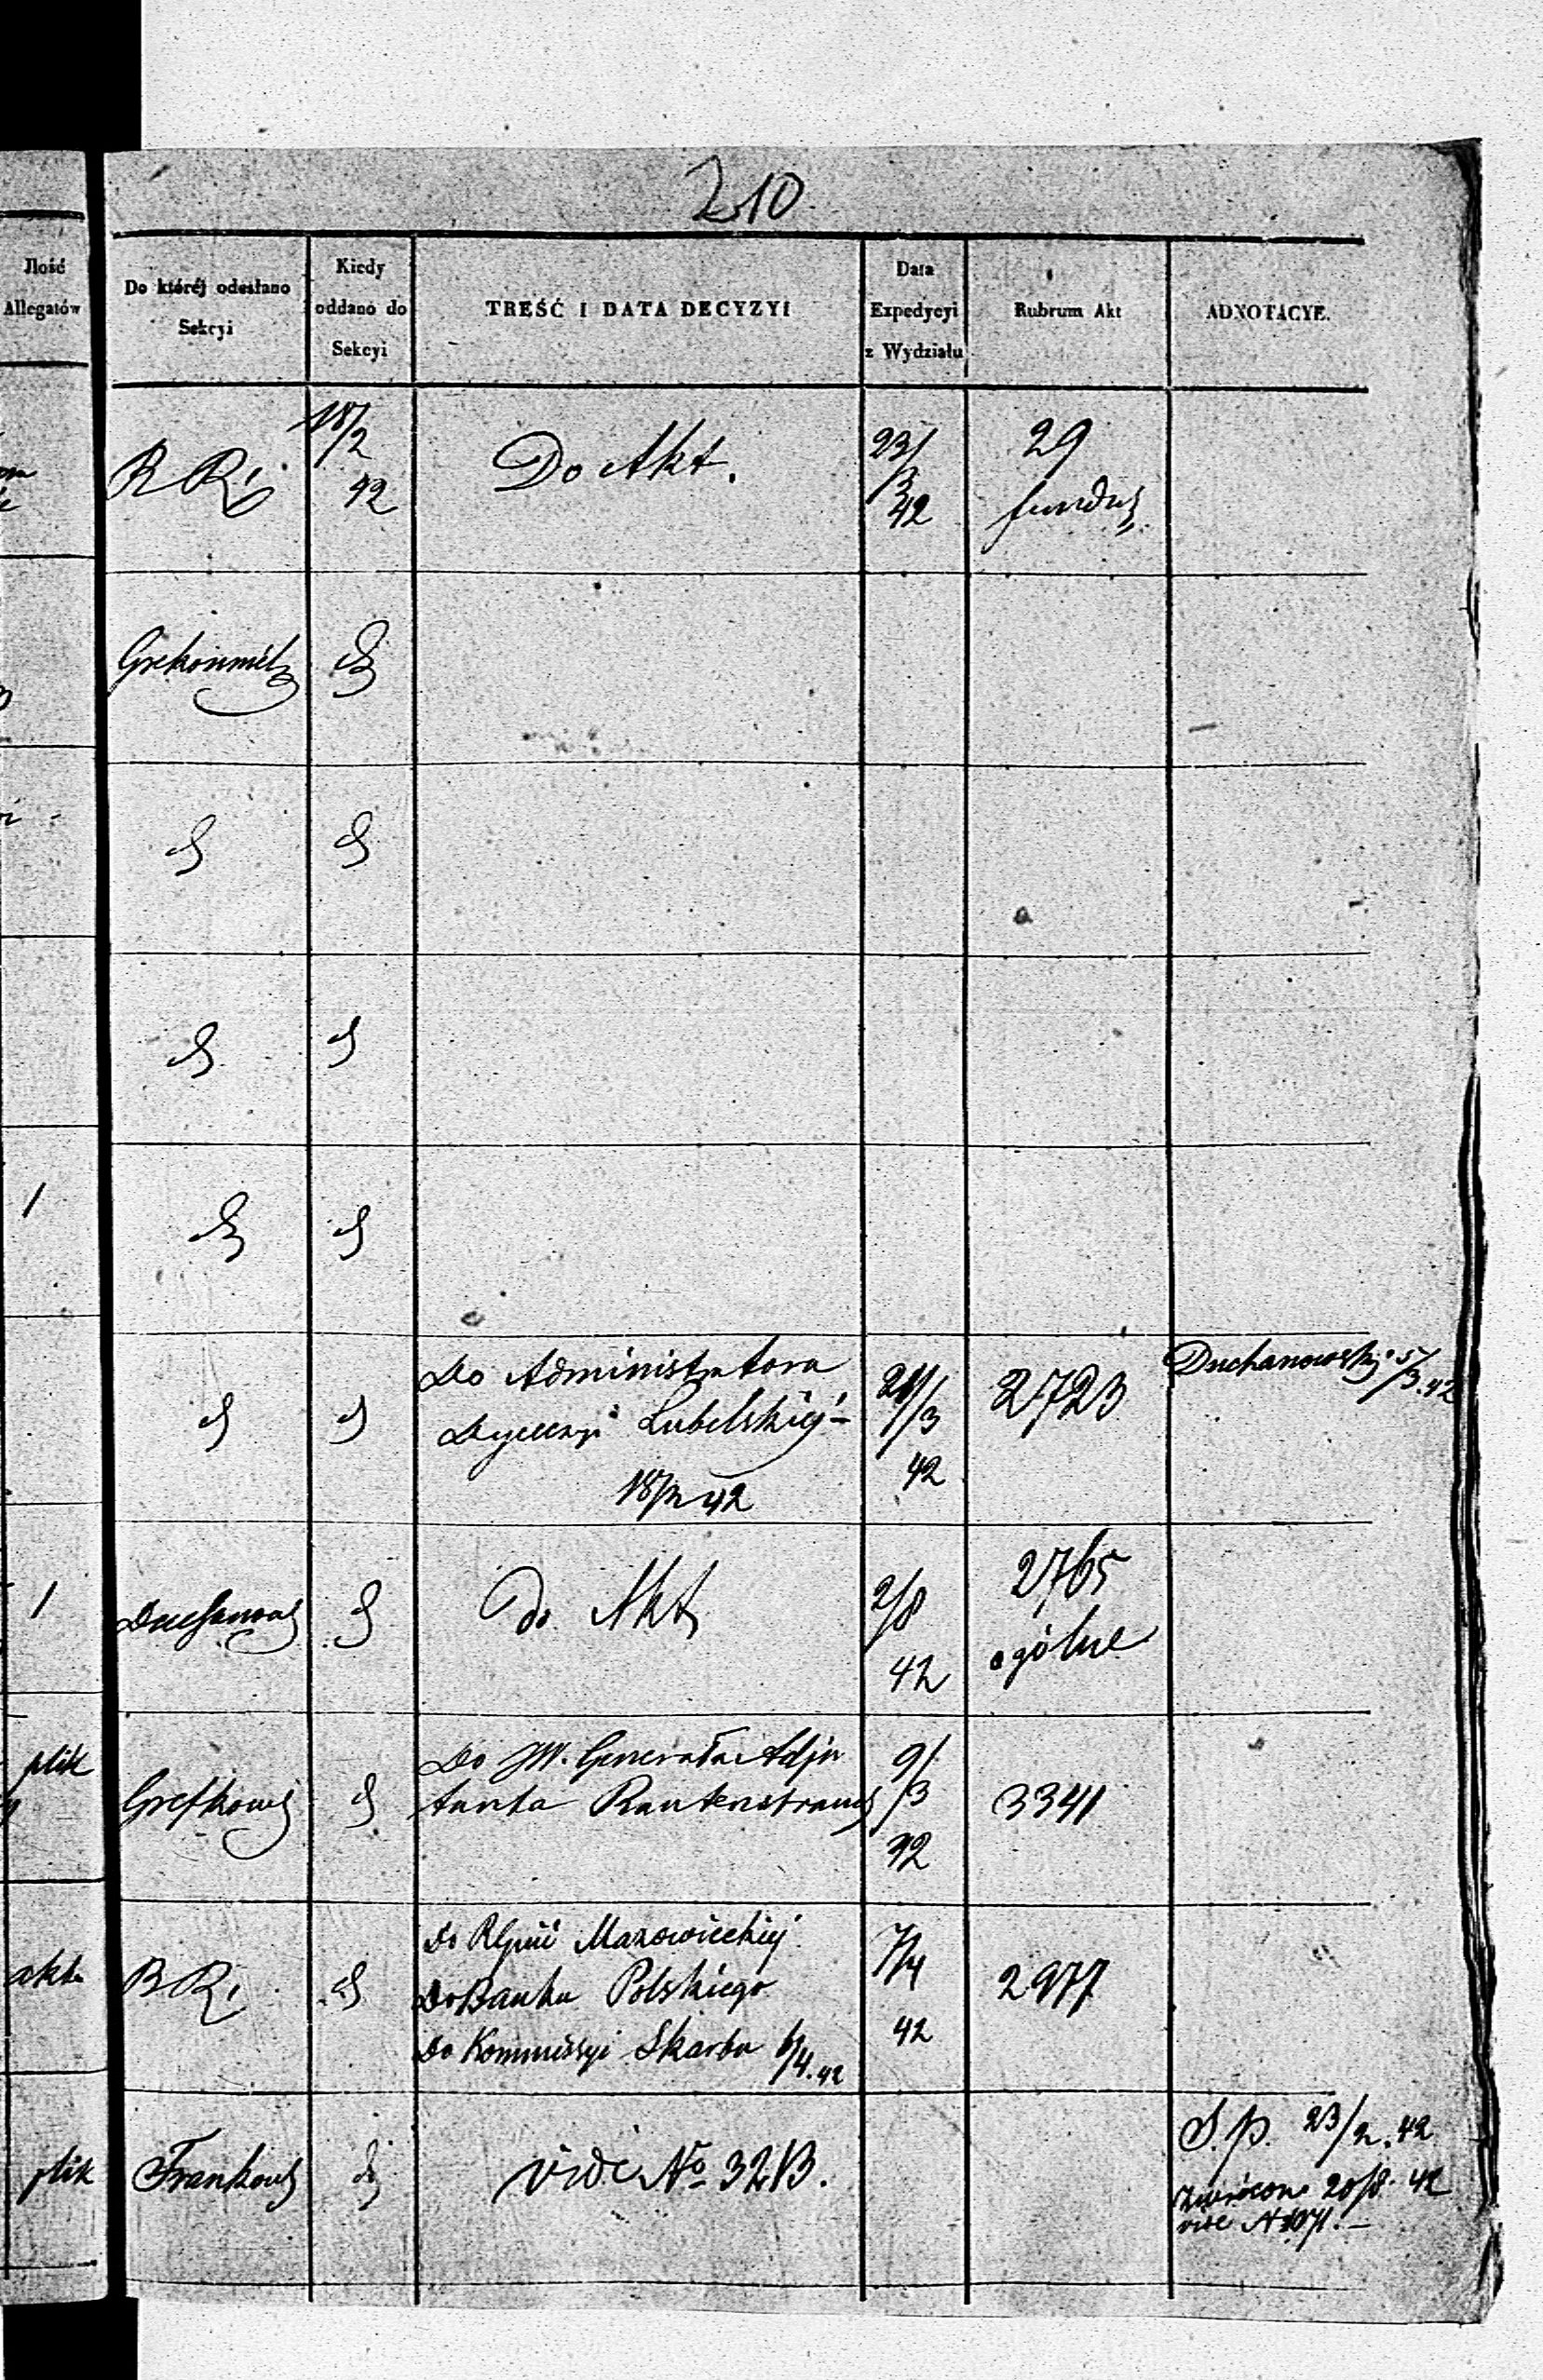 210
Ilość
Allegatów
Do któréj odesłano
Sekcyi
Kiedy
oddano do
Sekcyi
TREŚĆ I DATA DECYZYI
Data
Expedycyi
z Wydziału
Rubrum Akt
ADNOTACYE.
18/2
42
Do Akt.
23/3
42
29
fundus
1
Do Administratora
Dyecezyi Lubelskiéj
18/3 42
21/3
42
2723
Duchanowski 5/3.42
1
do Akt
2/8
42
2765
ogólne
plik
Do JW. Generała Adju
tanta Rautenstrauch
9/3
42
3341
akta
BR
Mazowieckiéj
Do Banku Polskiego
Do Kommissyi Skarbu 6/4.42
7/4
42
2977
plik
Frankows
vide No 3213.
S.p. 23/2.42
zwrócono 20/8 42
vide N 1071.